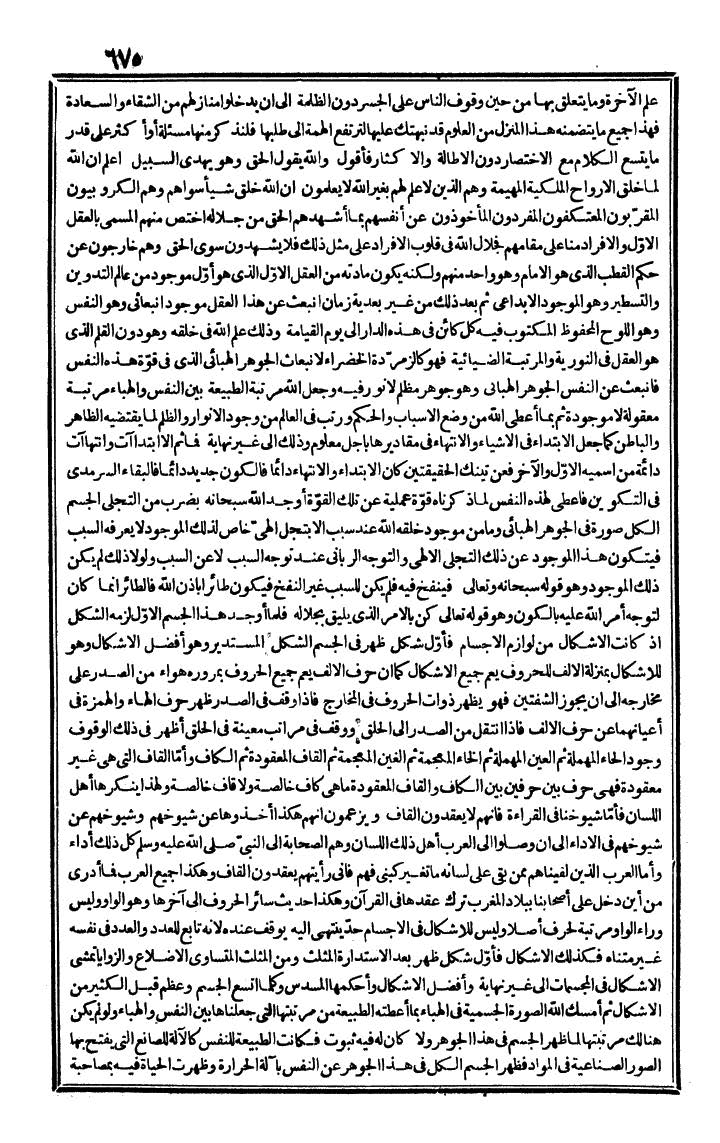 ٦٧٥
علم الآخرة وما يتعلق بها من حين وقوف الناس على الجسر دون الظلمة الى ان يدخلوا منازلهم من الشقاء والسعادة
فهذا جميع ما يتضمنه هذا المنزل من العلوم قد نبهتك عليها لترتفع الهمة الى طلبها فلنذكر منها مسئلة أو أكثر على قدر
ما يتسع الكلام مع الاختصار دون الاطالة والاكثار فأقول والله يقول الحق وهو يهدى السبيل اعلم ان الله
لما خلق الارواح الملكية المهيمة وهم الذين لا علم لهم بغير الله لا يعلمون ان الله خلق شيأ سواهم وهم الكروبيون
المقربون المعتكفون المفردون المأخوذون عن أنفسهم بما أشهدهم الحق من جلاله اختص منهم المسمى بالعقل
الاول والافراد منا على مقامهم فجلال الله فى قلوب الافراد على مثل ذلك فلا يشهدون سوى الحق وهم خارجون عن
حكم القطب الذى هو الامام وهو واحد منهم ولكنه يكون مادته من العقل الاول الذى هو أول موجود من عالم التدوين
والتسطير وهو الموجود الابداعى ثم بعد ذلك من غير بعدية زمان انبعث عن هذا العقل موجود انبعاثى وهو النفس
وهو اللوح المحفوظ المكتوب فيه كل كائن فى هذه الدار الى يوم القيامة وذلك علم الله فى خلقه وهو دون القلم الذى
هو العقل فى النورية والمرتبة الضيائية فهو كالزمردة الخضراء لانبعاث الجوهر الهبائى الذى فى قوة هذه النفس
فانبعث عن النفس الجوهر الهبائى وهو جوهر مظلم لا نور فيه وجعل الله مرتبة الطبيعة بين النفس والهباء مرتبة
معقولة لا موجودة ثم بما أعطى الله من وضع الاسباب والحكم ورتب فى العالم من وجود الانوار والظلم لما يقتضيه الظاهر
والباطن كما جعل الابتداء فى الاشياء والانتهاء فى مقاديرها باجل معلوم وذلك الى غير نهاية فما ثم الا ابتداآت وانتهاآت
دائمة من اسميه الاول والآخر فعن تينك الحقيقتين كان الابتداء والانتهاء دائما فالكون جديد دائما فالبقاء السرمدى
فى التكوين فاعطى لهذه النفس لما ذكرناه قوة عملية عن تلك القوة أوجد الله سبحانه بضرب من التجلى الجسم
الكل صورة فى الجوهر الهبائى وما من موجود خلقه الله عند سبب الا بتجل الهىّ خاص لذلك الموجود لا يعرفه السبب
فيتكون هذا الموجود عن ذلك التجلى الالهى والتوجه الربانى عند توجه السبب لا عن السبب ولولا ذلك لم يكن
ذلك الموجود وهو قوله سبحانه وتعالى فينفخ فيه فلم يكن للسبب غير النفخ فيكون طائرا باذن الله فالطائر انما كان
لتوجه أمر الله عليه بالكون وهو قوله تعالى كن بالامر الذى يليق بجلاله فلما أوجد هذا الجسم الاول لزمه الشكل
اذ كانت الاشكال من لوازم الاجسام فأول شكل ظهر فى الجسم الشكل المستدير وهو أفضل الاشكال وهو
للاشكال بمنزلة الالف للحروف يعم جميع الاشكال كما ان حرف الالف يعم جميع الحروف بمروره هواء من الصدر على
مخارجه الى ان يجوز الشفتين فهو يظهر ذوات الحروف فى المخارج فاذا وقف فى الصدر ظهر حرف الهاء والهمزة فى
أعيانهما عن حرف الالف فاذا انتقل من الصدر الى الحلق ووقف فى مراتب معينة فى الحلق أظهر فى ذلك الوقوف
وجود الحاء المهملة ثم العين المهملة ثم الخاء المعجمة ثم الغين المعجمة ثم القاف المعقودة ثم الكاف وأما القاف التى هى غير
معقودة فهى حرف بين حرفين بين الكاف والقاف المعقودة ما هى كاف خالصة ولا قاف خالصة ولهذا ينكرها أهل
اللسان فأما شيوخنا فى القراءة فانهم لا يعقدون القاف ويزعمون انهم هكذا أخذوها عن شيوخهم وشيوخهم عن
شيوخهم فى الاداء الى ان وصلوا الى العرب أهل ذلك اللسان وهم الصحابة الى النبىّ صلى الله عليه وسلم كل ذلك أداء
وأما العرب الذين لقيناهم ممن بقى على لسانه ما تغير كبنى فهم فانى رأيتهم يعقدون القاف وهكذا جميع العرب فما أدرى
من أين دخل على أصحابنا ببلاد المغرب ترك عقدها فى القرآن وهكذا حديث سائر الحروف الى آخرها وهو الواو وليس
وراء الواو مرتبة لحرف أصلا وليس للاشكال فى الاجسام حدّ ينتهى اليه يوقف عنده لانه تابع للعدد والعدد فى نفسه
غير متناه فكذلك الاشكال فأول شكل ظهر بعد الاستدارة المثلث ومن المثلث المتساوى الاضلاع والزوايا تمشى
الاشكال فى المجسمات الى غير نهاية وأفضل الاشكال وأحكمها المسدس وكلما اتسع الجسم وعظم قبل الكثير من
الاشكال ثم أمسك الله الصورة الجسمية فى الهباء بما أعطته الطبيعة من مرتبتها التى جعلنا ها بين النفس والهباء ولو لم يكن
هنالك مرتبتها لما ظهر الجسم فى هذا الجوهر ولا كان له فيه ثبوت فكانت الطبيعة للنفس كالآلة للصانع التى يفتح بها
الصور الصناعية فى المواد فظهر الجسم الكل فى هذا الجوهر عن النفس بآلة الحرارة وظهرت الحياة فيه بمصاحبة